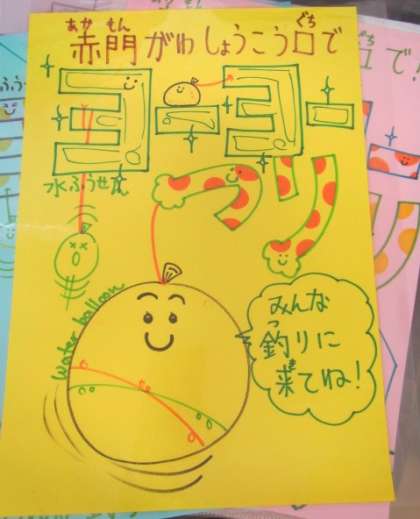 赤門がわしょうこう口で
あか もん ぐち
ヨーヨー
ツリ
水ふうせん
Water balloon
みんな
釣りに
来てね!
つ
き